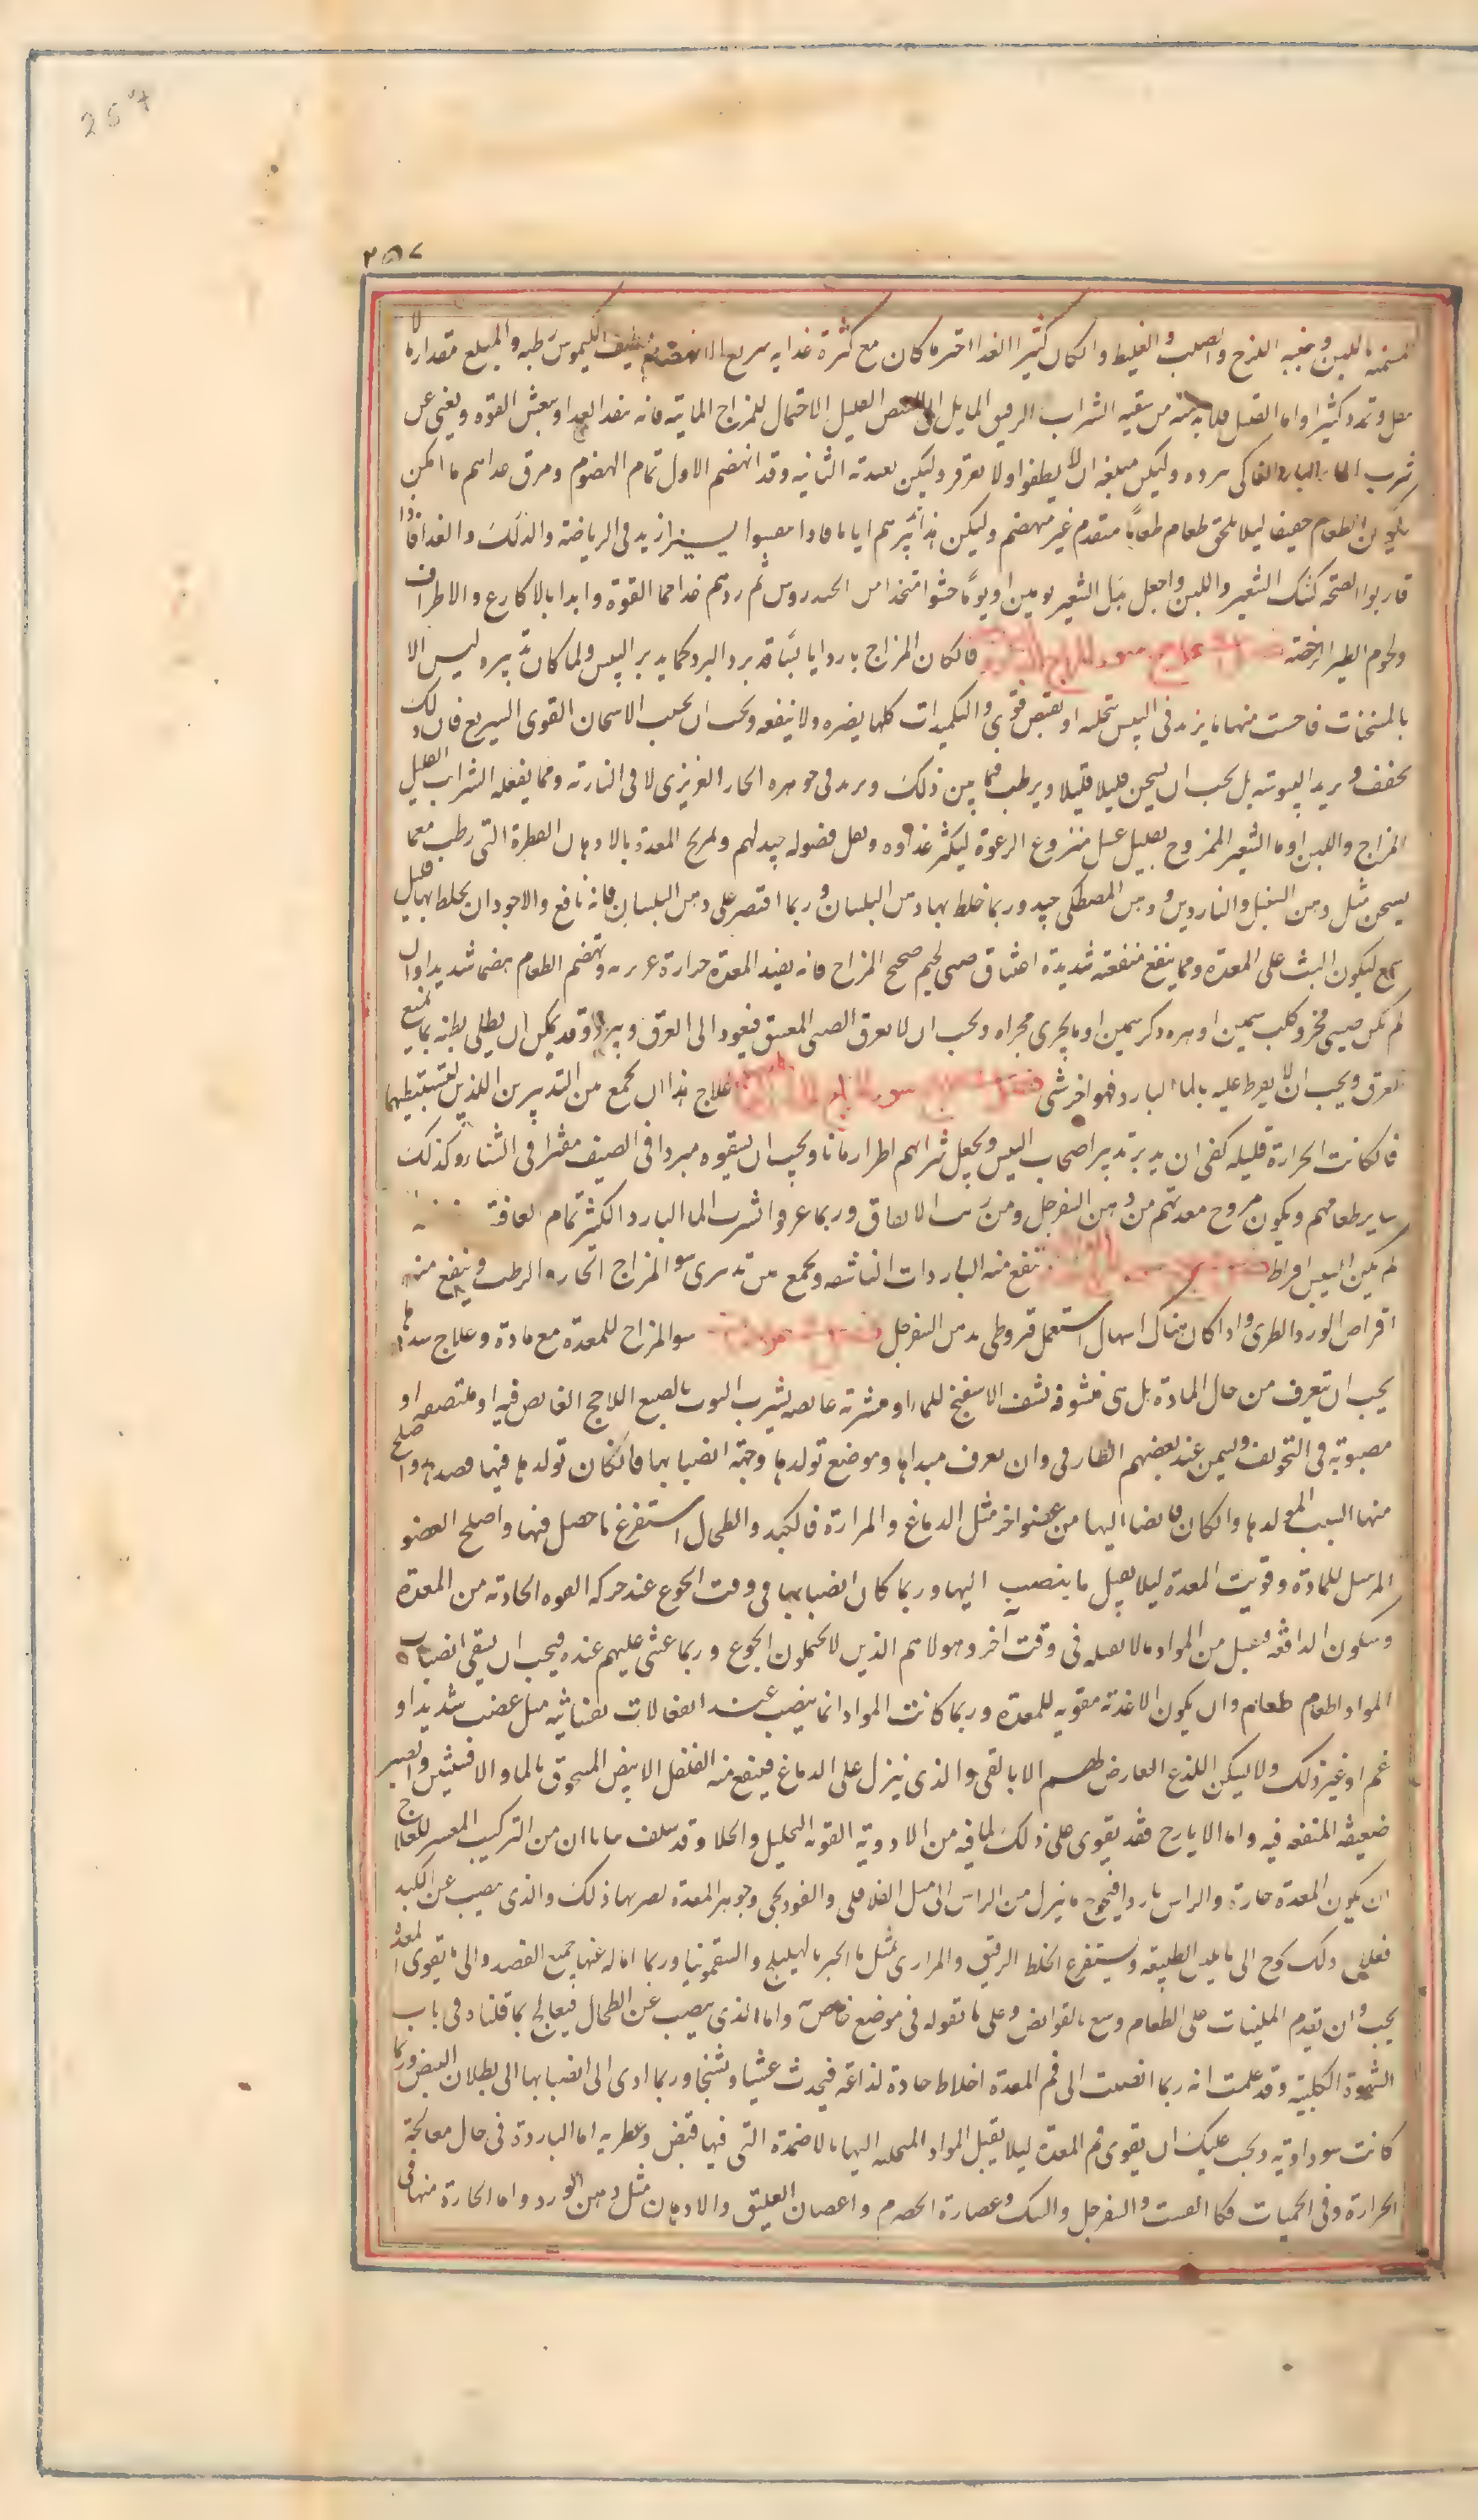 257
٢٥٧
باللبن ويجنبه اللزج والصلب والغليظ وان كان كثير الغذا اختر ما كان مع كثرة غذايه سريع الانهضام لطيف الكيموس رطبه والمبلغ مقدار ما لا
يثقل وتمدد كثيرا واما القليل فلا بد منه من سقيه الشراب الرقيق المايل الى القليل الاحتمال للمزاج المائية فانه ينفذ الغدا وينعش القوه ويغنى عن
شرب الما البارد برده وليكن مبلغه ان لا يطفوا ولا يقرقر وليكن تغديته الثانيه وقد انهضم الاول تمام الهضوم ومرق غداهم ما امكن
يكون الطعام خفيفا ليلا يلحق طعام طعاما متقدم غير منهضم وليكن تدبيرهم اياما فاذا يسيرا زيد فى الرياضة والدلك والغدا فاذا
قاربوا الصحة كشك الشعير واللبن واجعل بدل الشعير يومين او يوما حشوا متخذا من الخندروس ثم ردهم غدا القوة وابدا بالاكارع والاطراف
ولحوم الطير الرخصة فان كان المزاج باردا يابسا قد برد البرد كما يدبر اليبس ولما كان تدبيره ليس الا
بالمسخنات فاحست منها ما يزيد فى اليبس بتحله او بقبض قوى والتكميدات كلها يضره ولا ينفعه ويجب ان يجتنب الاسخان القوى السريع فان ذلك
يجفف ويزيد اليبوسة بل يجب ان يسخن قليلا قليلا ويرطب فيما بين ذلك ويزيد فى جوهره الحار الغريزى لا فى النارية ومما يفعله الشراب القليل
المزاج واللبن او ما الشعير الممزوج بقليل عسل منزوع الرغوة ليكثر غذاوه ويقل فضوله جيد لهم وتمريخ المعدة بالادهان العطرة التى رطب مع ما
يسخن مثل دهن السنبل والناردين ودهن المصطكى جيد وربما خلط بها دهن البلسان وربما اقتصر على دهن البلسان فانه نافع والاجود ان يخلط بها قليل
شمع ليكون البث على المعدة ومما ينفع منفعة شديدة اعتناق صبى لحيم صحيح المزاج فانه يفيد المعدة حرارة غريزية وتهضم الطعام هضما شديدا وان
لم يكن صبى فجرو كلب سمين او هره ذكر سمين او ما يجرى مجراه ويجب ان لا يعرق الصبى المعتنق فيعود الى العرق ويبرد وقد يمكن ان يطلى بطنه بما يمنع
العرق ويجب ان لا يفرط عليه بالما البارد فهو اضر شى علاج هذا ان يجمع من التدبيرين اللذين
فان كانت الحرارة قليله كفى ان يدبر تدبير اصحاب اليبس ويجعل شرابهم اطرا زمانا ويجب ان يسقوه مبردا فى الصيف مفترا فى الشتا وكذلك
ساير طعامهم ويكون مروخ معدتهم من دهن السفرجل ومن زيت الانفاق وربما عرفوا شرب الما البارد الكثير تمام لعافية
لم يكن اليبس افراط ينفع منه الباردات الناشفه ويجمع من تدبيرى سو المزاج الحار والرطب وينفع منه
اقراص الورد الطرى واذا كان هناك اسهال استعمل قيروطى بدهن السفرجل سو المزاج للمعدة مع مادة وعلاج سددها
يجب ان يتعرف من حال المادة بل هى نشف الاسفنج للماء او متشربة غايصه الصبغ اللاحج الغايص فيه او ملتصقه او
مصبوبة فى التجويف وليمن عند بعضهم الطافى وان يعرف مبداها وموضع تولدها وجهة انصبابها فان كان تولدها فيها قصد واصلح
منها السبب المولد لها وان كان فايضا اليها من عضو اخر مثل الدماغ والمرارة فالكبد والطحال استفرغ ما حصل فيها واصلح العضو
المرسل للمادة وقويت المعدة ليلا يقبل ما ينصب اليها وربما كان انصبابها فى وقت الجوع عند حركه القوه الجاذبه من المعدة
وسكون الدافعه فيقبل من المواد ما لا يقبله فى وقت اخر وهولا هم الذين لا يحتملون الجوع وربما غشى عليهم عنده فيجب ان يسقى انصباب
المواد اطعام طعام وان يكون الاغذية مقويه للمعدة وربما كانت المواد انما ينصب عند انفعالات نفسانيه مثل غضب شديد او
غم او غير ذلك ولا ليسكن اللذع العارض لهم الا بالقى والذى ينزل على الدماغ فينفع منه الفلفل الابيض المسحوق بالما والافسنتين والصبر
ضعيفه المنفعه فيه واما الايارج فقد يقوى على ذلك لما فيه من الادوية القوية التحليل والجلا وقد سلف من التركيب المعسر للعلاج
ان يكون المعدة حارة والراس باردا فيحوج ما ينزل من الراس الى مثل الفلافلى والفودنجى وجوهر المعدة يضر بها ذلك والذى ينصب عن الكبد
فعلى ذلك يحوج الى ما يلين الطبيعة ويستفرغ الخلط الرقيق والمرارى مثل ما الجبن بالهليلج والسقمونيا وربما اماله عنها جميع الفصد والى ما يقوى المعدة
يجب وان يقدم الملينات على الطعام ويتبع بالقوابض وعلى ما نقوله فى موضع خاص واما الذى ينصب عن الطحال فيعالج بما قلناه فى باب
الشهوة الكلبية وقد علمت انه ربما انصبت الى فم المعدة اخلاط حادة لذاعه فيحدث غشيا وتشنجا وربما ادى الى انصبابها الى بطلان النبض وربما
كانت سوداوية ويجب عليك ان يقوى فم المعدة ليلا يقبل المواد المتحلبه اليها بالاضمدة التى فيها قبض وعطريه اما الباردة فى حال معالجة
الحرارة وفى الحميات فكالقسب والسفرجل والسك وعصارة الحصرم واغصان العليق والادهان مثل دهن الورد واما الحارة منها فى